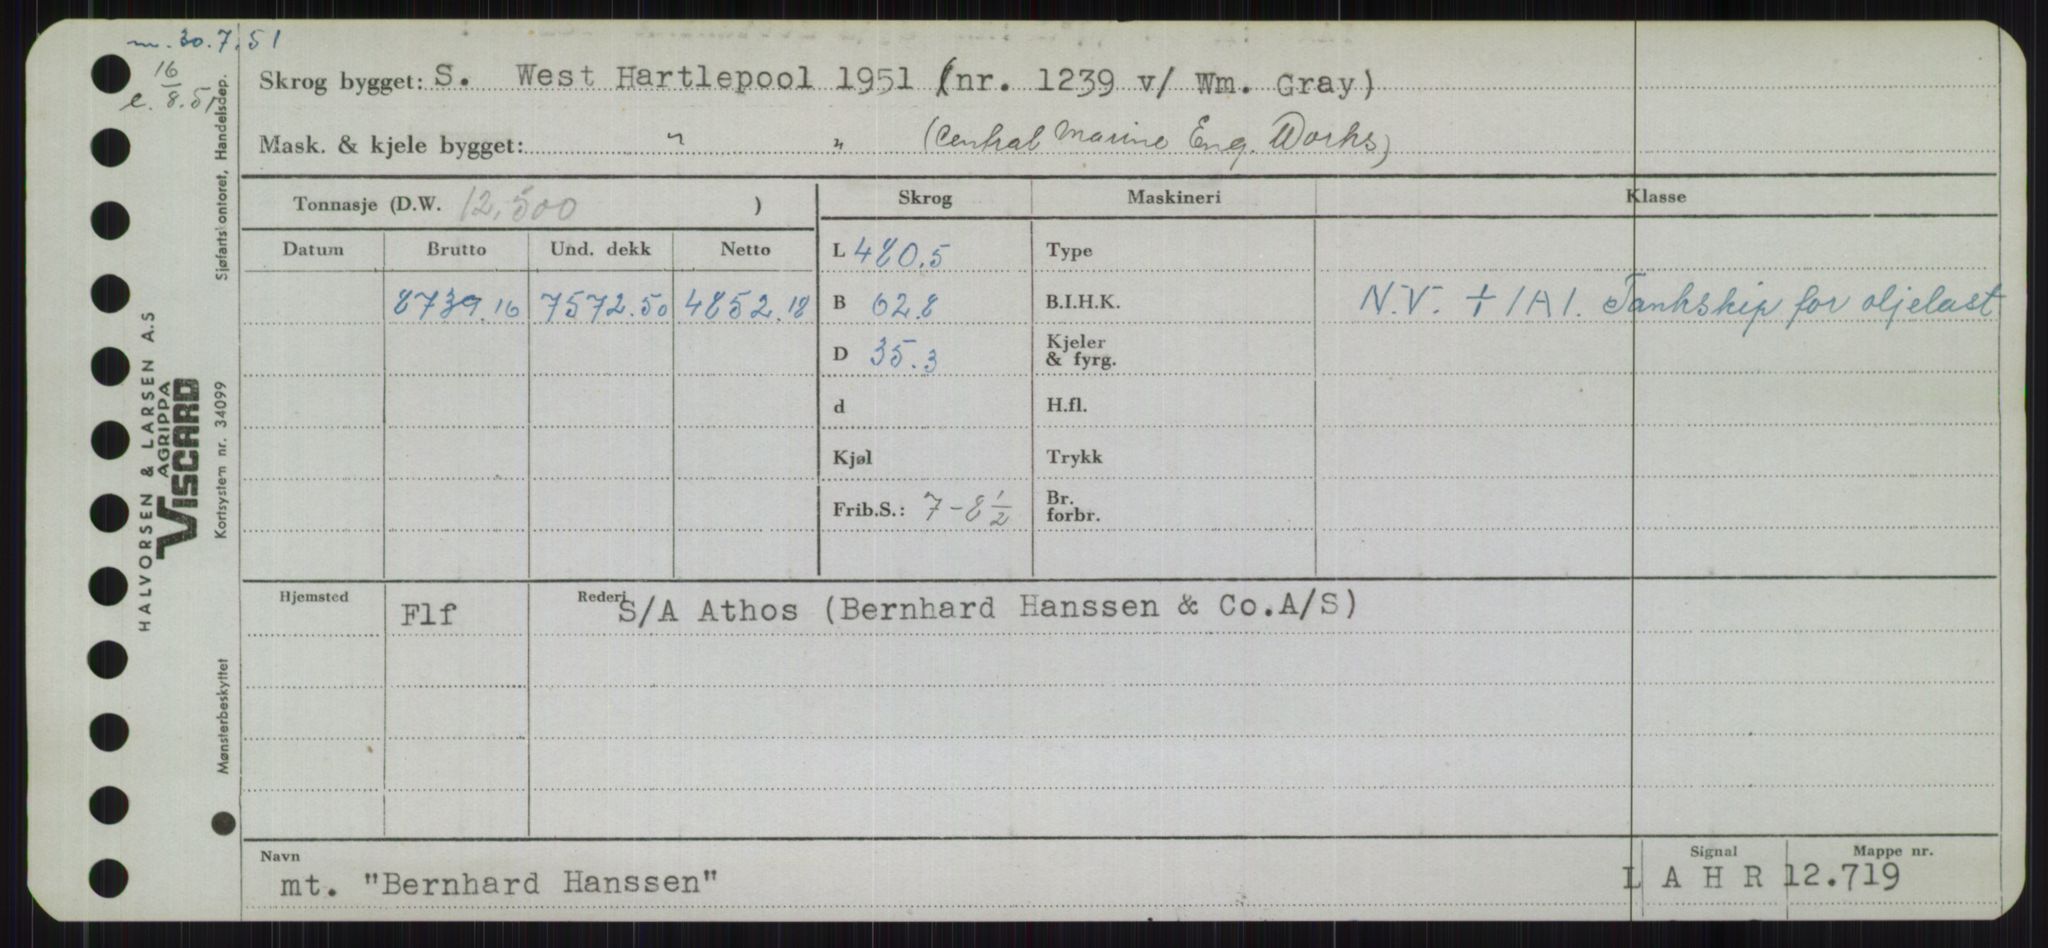 m. 30.7.51
16
e. 8.51
Skrog bygget: S. West Hartlepool 1951 (nr. 1239 v/ Wm. Gray)
Mask. & kjele bygget: " " (Central Marine Eng. Works)
Tonnasje (D.W. 12,500 )
Skrog Maskineri Klasse
Datum Brutto Und. dekk Netto
L 480.5 Type
8739.16 7572.50 4852.18
B 62.8 B.I.H.K. N.V. + 1A1. Tankskip for oljelast
D 35.3 Kjeler & fyrg.
d H.fl.
Kjøl Trykk
Frib.S.: 7-8 1/2 Br. forbr.
Hjemsted Flf Rederi S/A Athos (Bernhard Hanssen & Co.A/S)
Navn Signal Mappe nr.
mt. "Bernhard Hanssen" L A H R 12.719
HALVORSEN & LARSEN A.S
AGRIPPA
VISCARD
Mønsterbeskyttet Kortsystem nr. 34099 Sjøfartskontoret, Handelsdep.